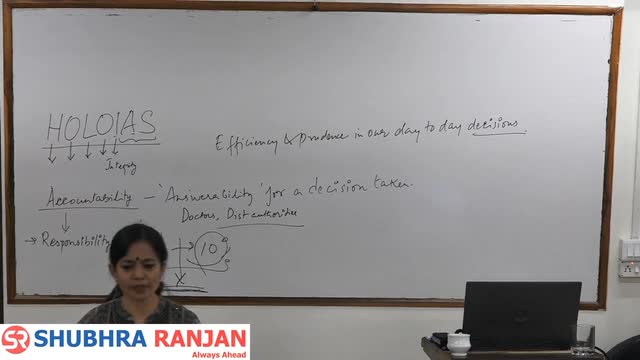 HOLOIAS
Integrity
Efficiency & Prudence in our day to day decisions.
Accountability – 'Answerability' for a decision taken.
Doctors, Dist authorities
→ Responsibility
10
X
SR SHUBHRA RANJAN
Always Ahead